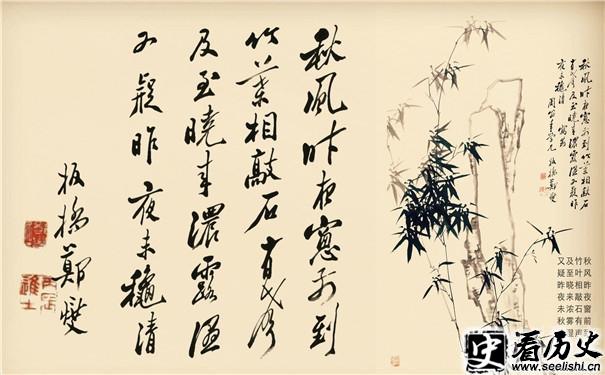 秋風昨夜窗前到
竹葉相敲石有聲
及至曉來濃露濕
又疑昨夜未穐清
板橋鄭燮
秋風昨夜窗前到竹葉相敲石
有聲及至曉來濃露濕又疑昨
夜未穐清
學兄 板橋鄭燮
秋风昨夜窗前
竹叶相敲石有声
及至晓来浓雾
又疑昨夜未秋
史 看历史
www.seelishi.cn